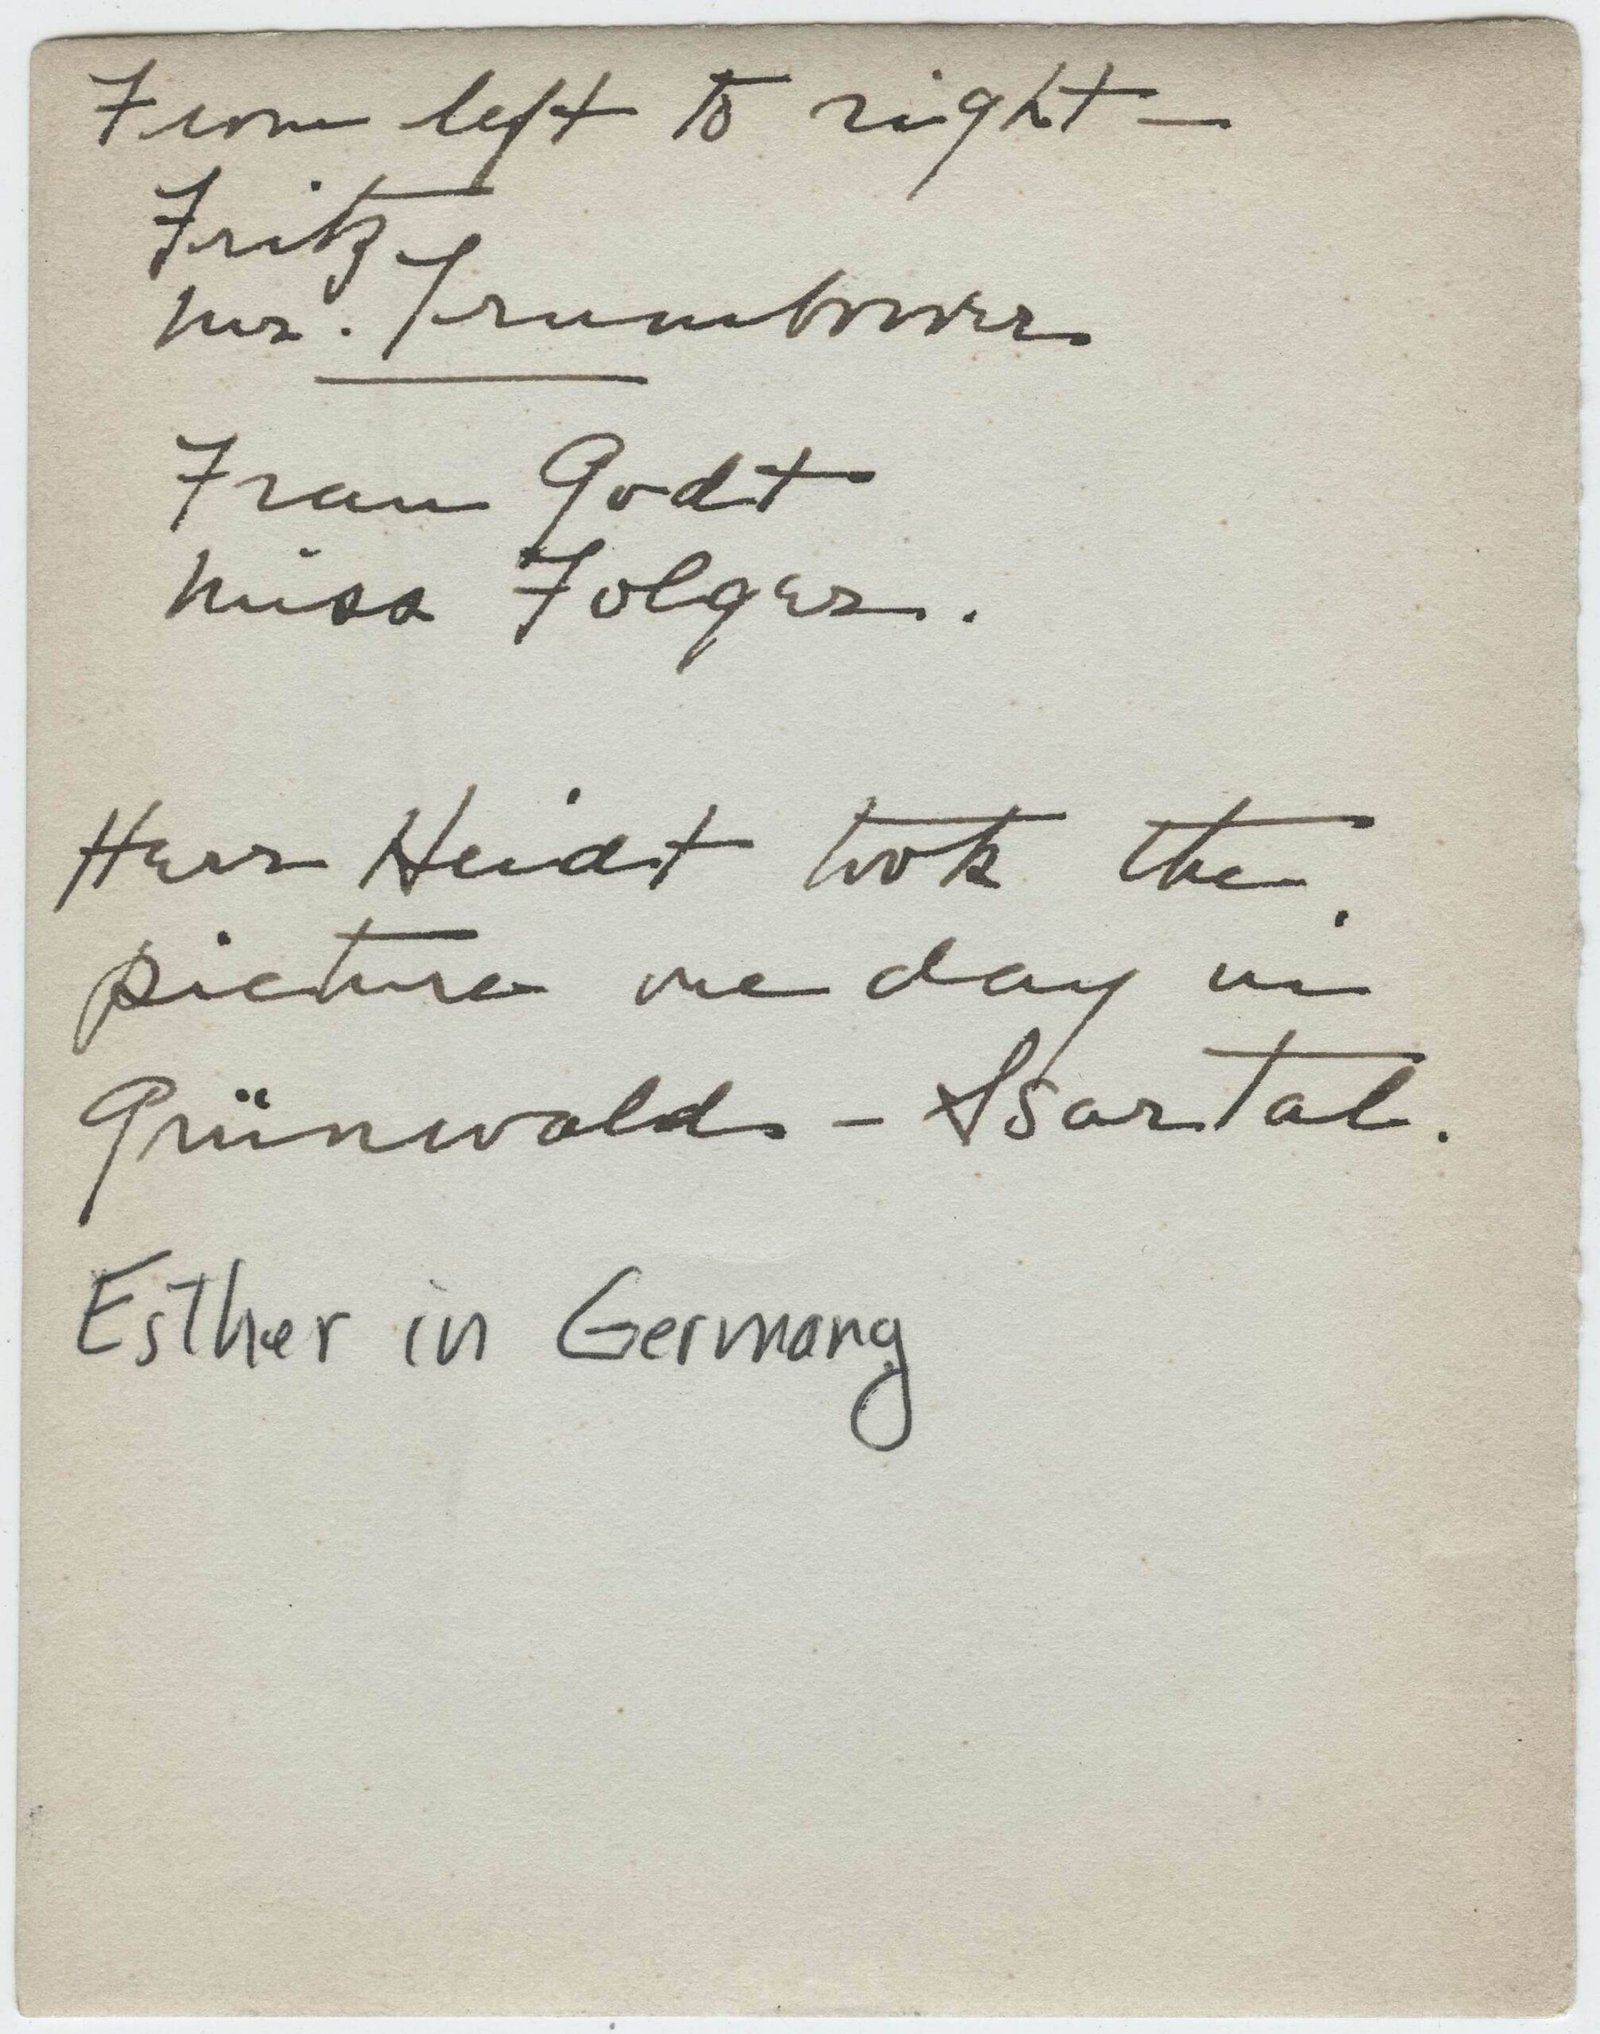 From left to right –
Fritz
Mrs. Trumbower
Frau Godt
Miss Folger.
Herr Heidt took the
picture one day in
Grünwald – Isartal.
Esther in Germany